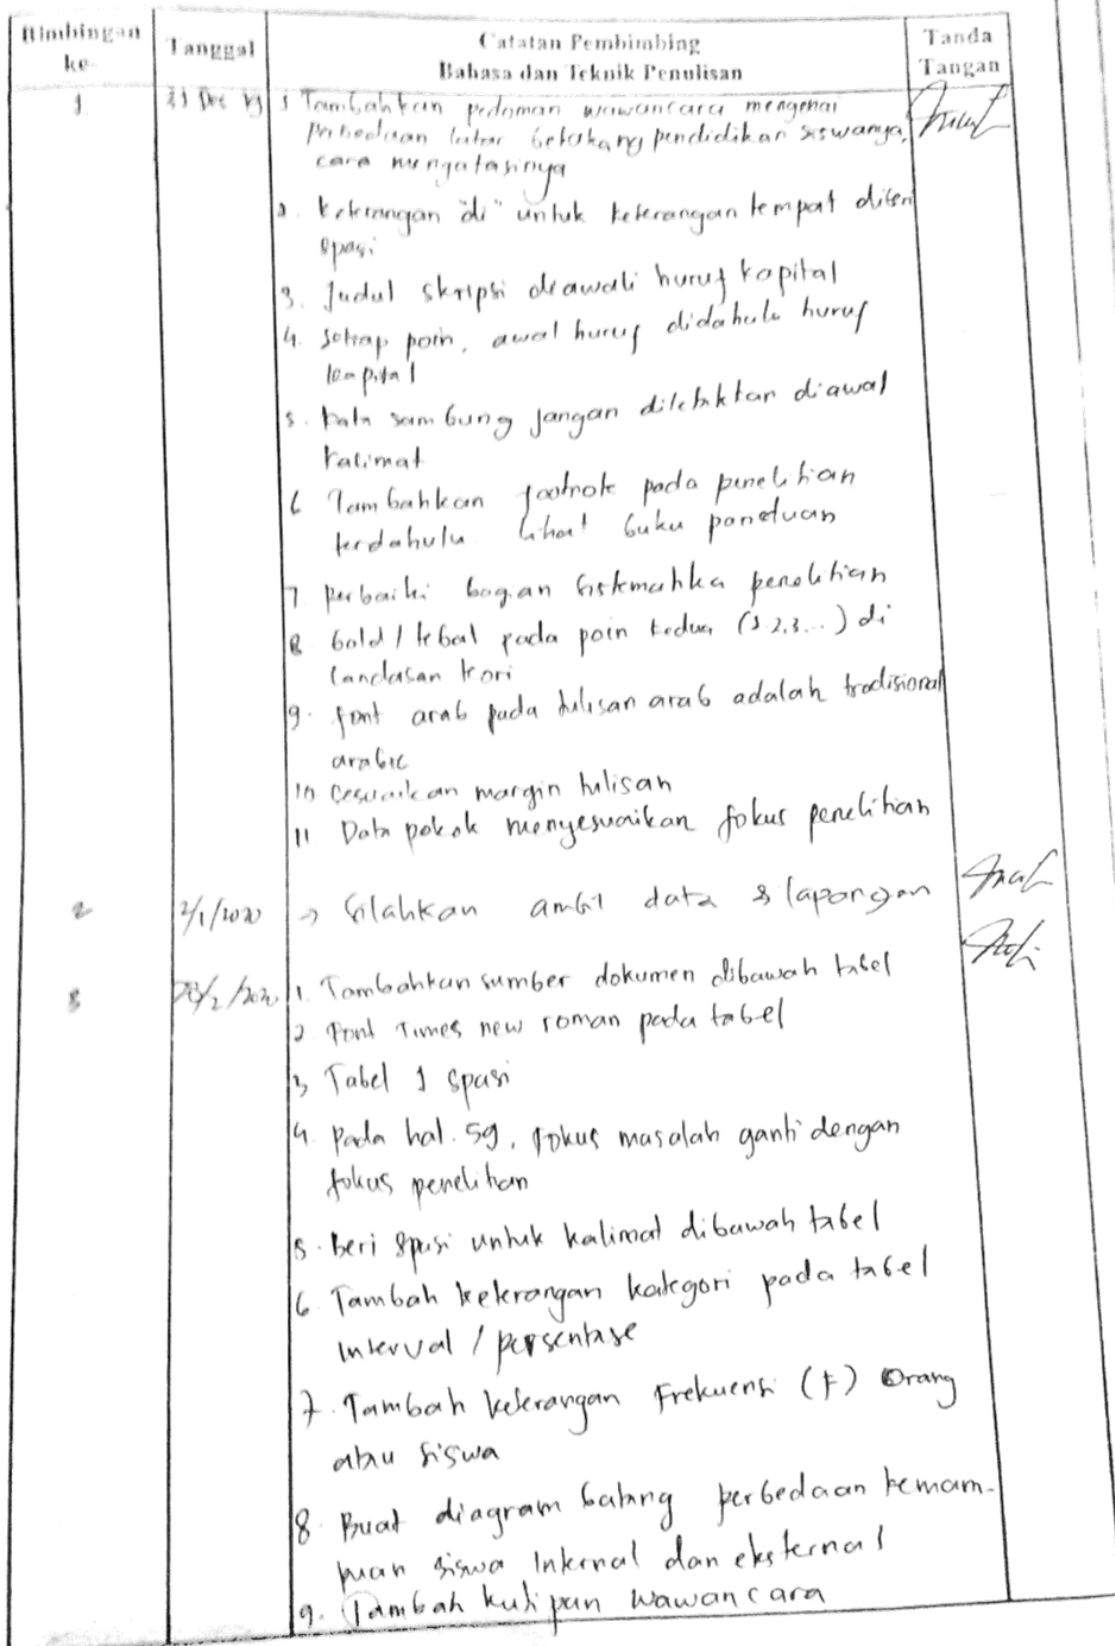 Bimbingan ke- Tanggal Catatan Pembimbing Bahasa dan Teknik Penulisan Tanda Tangan
1. Des 19 1 Tambahkan pedoman wawancara mengenai
perbedaan latar belakang pendidikan siswanya,
cara mengatasinya
2. keterangan "di" untuk keterangan tempat diberi
spasi
3. Judul skripsi diawali huruf kapital
4. setiap poin, awal huruf didahulu huruf
kapital
5. kata sambung jangan diletakkan diawal
kalimat
6 Tambahkan footnote pada penelitian
terdahulu. lihat buku panduan
7 perbaiki bagian sistematika penelitian
8 bold / tebal pada poin kedua (1.2.3...) di
landasan teori
9. font arab pada tulisan arab adalah tradisional
arabic
10 sesuaikan margin tulisan
11 Data pokok menyesuaikan fokus penelitian
2 2/1/2020 → silahkan ambil data & laporan
3 /2/2020 1. Tambahkan sumber dokumen dibawah tabel
2 Font Times new roman pada tabel
3 Tabel 1 spasi
4. pada hal. 59, fokus masalah ganti dengan
fokus penelitian
5. Beri spasi untuk kalimat dibawah tabel
6. Tambah keterangan kategori pada tabel
Interval / persentase
7. Tambah keterangan Frekuensi (F) Orang
atau siswa
8. Buat diagram batang perbedaan kemam-
puan siswa Internal dan eksternal
9. Tambah kutipan wawancara